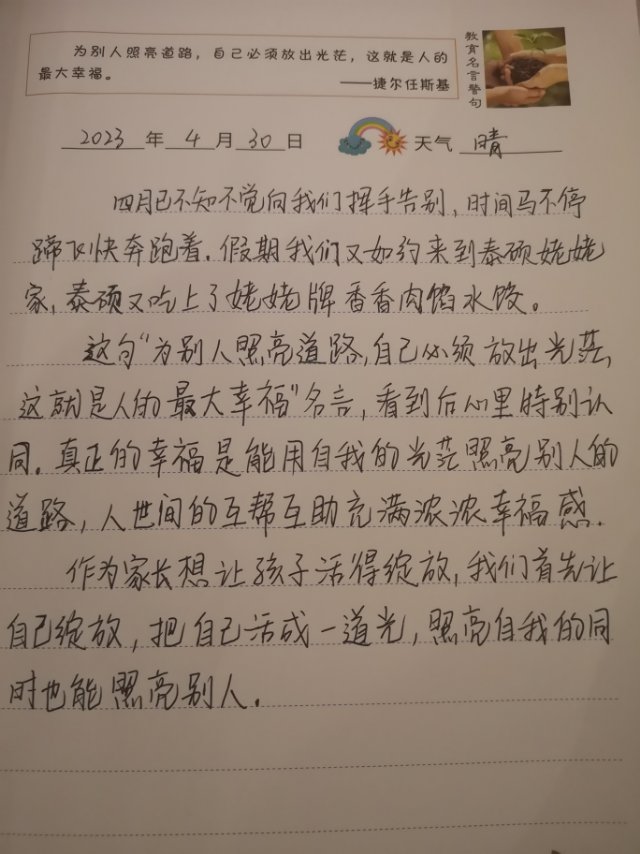 为别人照亮道路，自己必须放出光芒，这就是人的
最大幸福。
——捷尔任斯基
教育名言警句
2023 年 4 月 30 日 天气 晴
四月已不知不觉向我们挥手告别，时间马不停
蹄飞快奔跑着。假期我们又如约来到泰硕姥姥
家，泰硕又吃上了姥姥牌香香肉馅水饺。
这句“为别人照亮道路，自己必须放出光芒，
这就是人的最大幸福”名言，看到后心里特别认
同。真正的幸福是能用自我的光芒照亮别人的
道路，人世间的互帮互助充满浓浓幸福感．
作为家长想让孩子活得绽放，我们首先让
自己绽放，把自己活成一道光，照亮自我的同
时也能照亮别人．